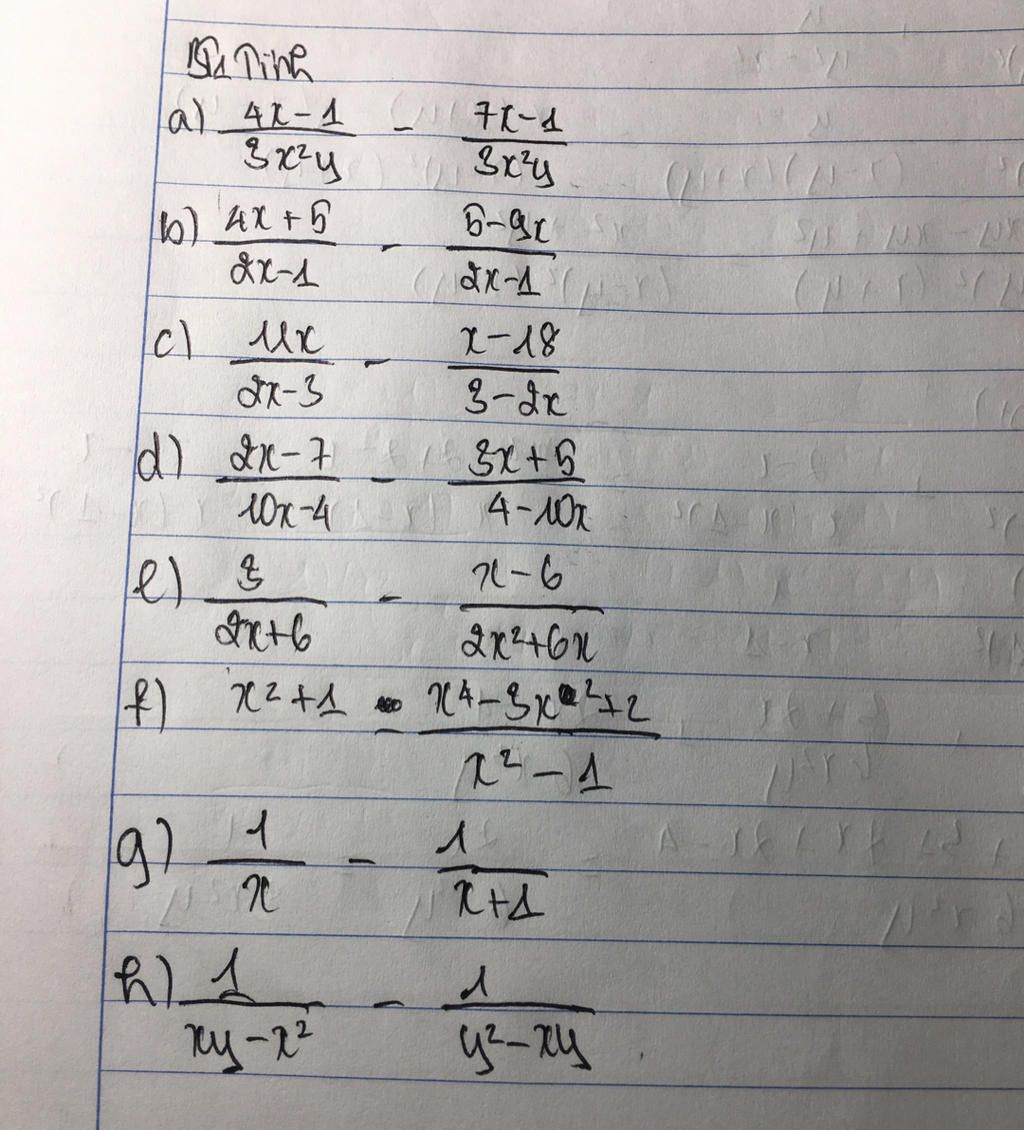 B1 Tính
a) \frac{4x-1}{3x²y} - \frac{7x-1}{3x²y}
b) \frac{4x+5}{2x-1} - \frac{5-9x}{2x-1}
c) \frac{11x}{2x-3} - \frac{x-18}{3-2x}
d) \frac{2x-7}{10x-4} - \frac{3x+5}{4-10x}
e) \frac{3}{2x+6} - \frac{x-6}{2x²+6x}
f) x²+1 - \frac{x⁴-3x²+2}{x²-1}
g) \frac{1}{x} - \frac{1}{x+1}
h) \frac{1}{xy-x²} - \frac{1}{y²-xy}